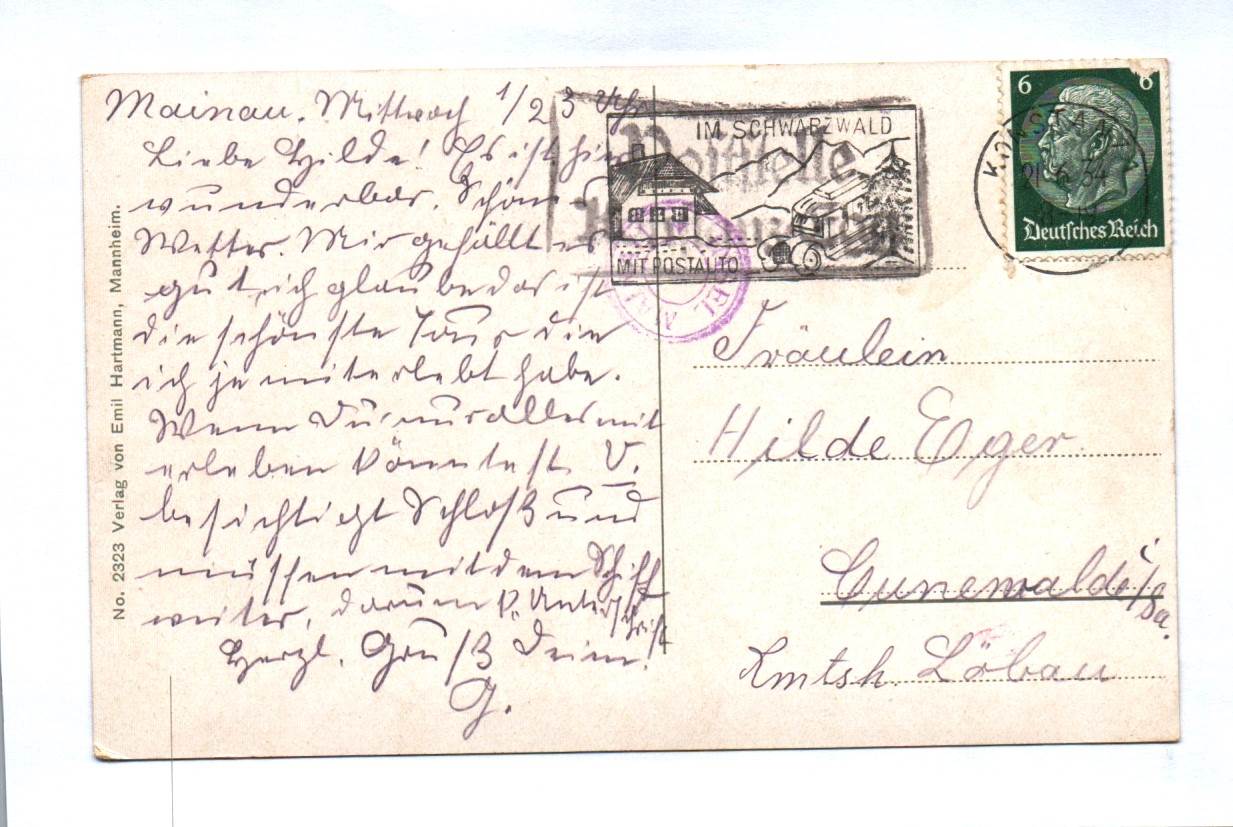 Mainau. Mittwoch 1/2 3 Uhr
Liebe Hilde! Es ist hier
wunderbar. Schön
Wetter. Mir gefällt es
gut, ich glaube das ist
die schönste Tour die
ich je miterlebt habe.
Wenn Du nur alles mit
erleben könntest. V.
besichtigt Schloß und
müssen mit dem Schiff
weiter, darum k. Unterschrift
Herzl. Gruß Deine
G.
No. 2323 Verlag von Emil Hartmann, Mannheim.
IM SCHWARZWALD
MIT POSTAUTO
Poststelle
KONSTANZ
21.6.34
6 6
Deutsches Reich
Fräulein
Hilde Eger
Cunewalde i/Sa.
Amtsh. Löbau